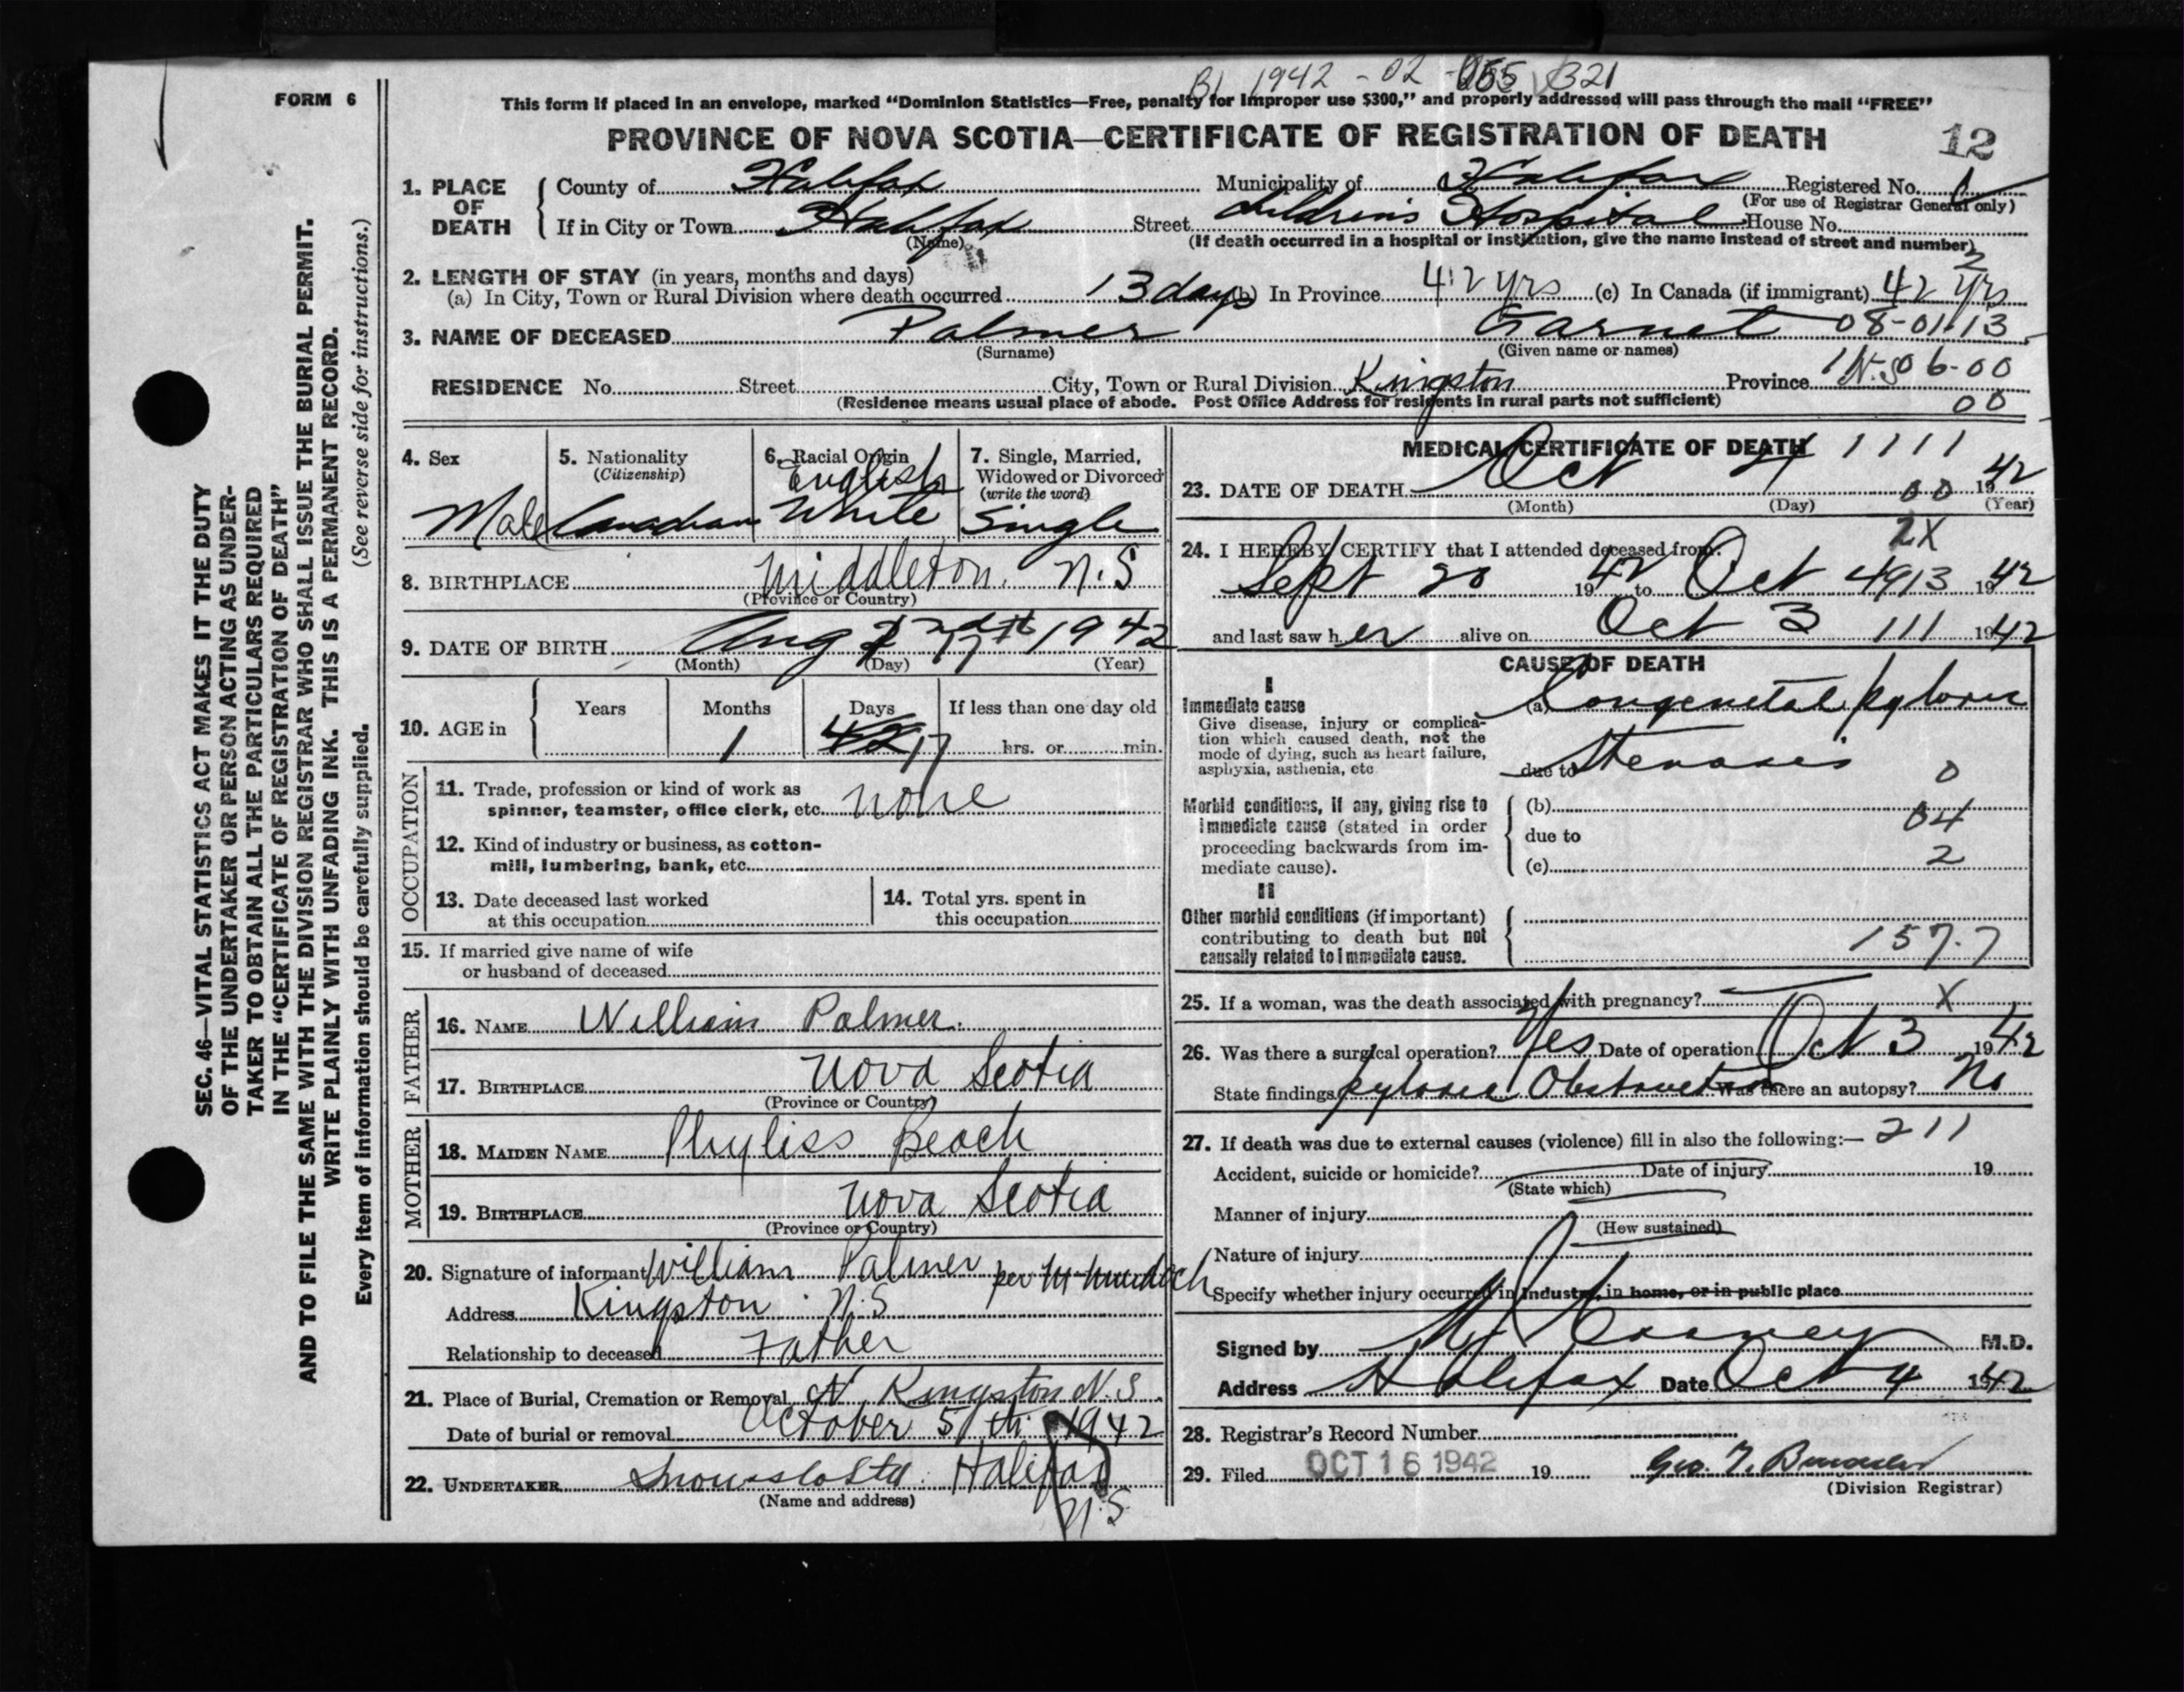 B1 1942 - 02 - 321
FORM 6
This form if placed in an envelope, marked “Dominion Statistics—Free, penalty for improper use $300,” and properly addressed will pass through the mail “FREE”
PROVINCE OF NOVA SCOTIA—CERTIFICATE OF REGISTRATION OF DEATH 12
SEC. 46—VITAL STATISTICS ACT MAKES IT THE DUTY
OF THE UNDERTAKER OR PERSON ACTING AS UNDER-
TAKER TO OBTAIN ALL THE PARTICULARS REQUIRED
IN THE “CERTIFICATE OF REGISTRATION OF DEATH”
AND TO FILE THE SAME WITH THE DIVISION REGISTRAR WHO SHALL ISSUE THE BURIAL PERMIT.
WRITE PLAINLY WITH UNFADING INK. THIS IS A PERMANENT RECORD.
Every item of information should be carefully supplied. (See reverse side for instructions.)
1. PLACE OF DEATH County of Halifax Municipality of Halifax Registered No.
(For use of Registrar General only)
If in City or Town Halifax Street Children's Hospital House No.
(Name) (If death occurred in a hospital or institution, give the name instead of street and number)
2. LENGTH OF STAY (in years, months and days)
(a) In City, Town or Rural Division where death occurred 13 days (b) In Province 42 yrs (c) In Canada (if immigrant) 42 yrs
3. NAME OF DECEASED Palmer Garnet 08-01-13
(Surname) (Given name or names)
RESIDENCE No. Street City, Town or Rural Division Kingston Province N.S 06-00
(Residence means usual place of abode. Post Office Address for residents in rural parts not sufficient) 00
4. Sex 5. Nationality 6. Racial Origin 7. Single, Married,
(Citizenship) English Widowed or Divorced
(write the word)
Male Canadian White Single
8. BIRTHPLACE Middleton. N.S
(Province or Country)
9. DATE OF BIRTH Aug 17th 1942
(Month) (Day) (Year)
10. AGE in Years Months Days If less than one day old
1 42 17 hrs. or min.
OCCUPATION
11. Trade, profession or kind of work as
spinner, teamster, office clerk, etc. none
12. Kind of industry or business, as cotton-
mill, lumbering, bank, etc.
13. Date deceased last worked
at this occupation
14. Total yrs. spent in
this occupation
15. If married give name of wife
or husband of deceased
FATHER
16. NAME William Palmer.
17. BIRTHPLACE Nova Scotia
(Province or Country)
MOTHER
18. MAIDEN NAME Phyliss Beach
19. BIRTHPLACE Nova Scotia
(Province or Country)
20. Signature of informant William Palmer per M Murdoch
Address Kingston N.S
Relationship to deceased Father
21. Place of Burial, Cremation or Removal N Kingston N.S.
Date of burial or removal October 5th 1942
22. UNDERTAKER Snows Halifax
(Name and address) N.S
MEDICAL CERTIFICATE OF DEATH 1111
23. DATE OF DEATH Oct 4 00 1942
(Month) (Day) (Year)
2X
24. I HEREBY CERTIFY that I attended deceased from:
Sept 20 1942 to Oct 4 913 1942
and last saw h er alive on Oct 3 111 1942
CAUSE OF DEATH
I
Immediate cause
Give disease, injury or complica-
tion which caused death, not the
mode of dying, such as heart failure,
asphyxia, asthenia, etc
(a) Congenital pyloric
due to Stenosis 0
Morbid conditions, if any, giving rise to
immediate cause (stated in order
proceeding backwards from im-
mediate cause).
(b) 04
due to
(c) 2
II
Other morbid conditions (if important)
contributing to death but not
causally related to immediate cause.
157.7
25. If a woman, was the death associated with pregnancy? X
26. Was there a surgical operation? Yes Date of operation Oct 3 1942
State findings pyloric Obstruction Was there an autopsy? No
27. If death was due to external causes (violence) fill in also the following:— 211
Accident, suicide or homicide? Date of injury 19
(State which)
Manner of injury
(How sustained)
Nature of injury
Specify whether injury occurred in industry, in home, or in public place
Signed by M.D.
Address Halifax Date Oct 4 1942
28. Registrar's Record Number
29. Filed OCT 16 1942 19 Geo.
(Division Registrar)